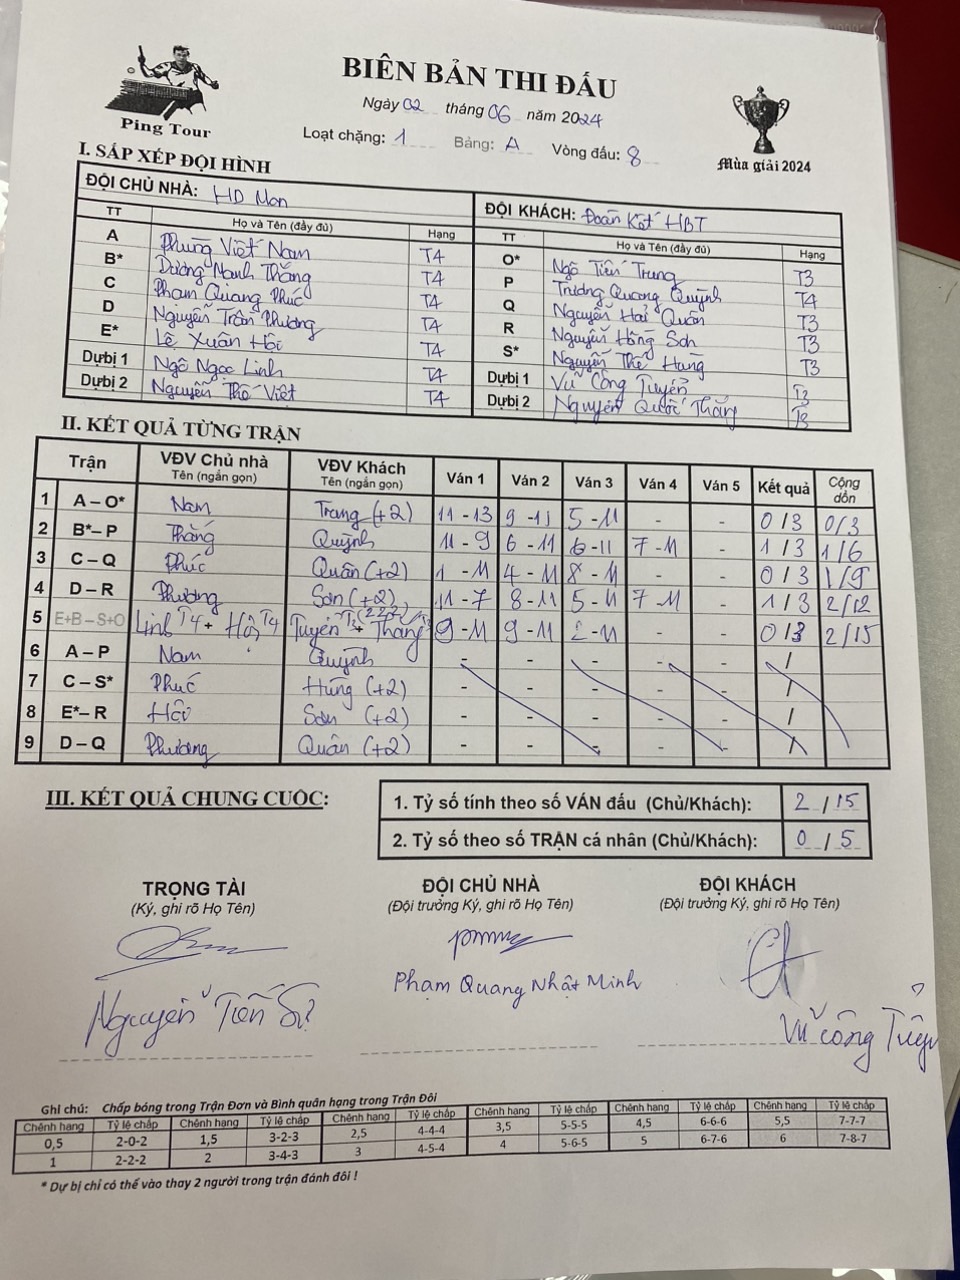 BIÊN BẢN THI ĐẤU
Ping Tour
Ngày 02 tháng 06 năm 2024
Loạt chặng: 1 Bảng: A Vòng đấu: 8
Mùa giải 2024
I. SẮP XẾP ĐỘI HÌNH
ĐỘI CHỦ NHÀ: HD Mon
TT Họ và Tên (đầy đủ) Hạng
A Phùng Việt Nam T4
B* Dương Mạnh Thắng T4
C Phạm Quang Phúc T4
D Nguyễn Trần Phương T4
E* Lê Xuân Hội T4
Dựbị 1 Ngô Ngọc Linh T4
Dựbị 2 Nguyễn Thế Việt T4
ĐỘI KHÁCH: Đoàn Kết HBT
TT Họ và Tên (đầy đủ) Hạng
O* Ngô Tiến Trung T3
P Trương Quang Quỳnh T4
Q Nguyễn Hải Quân T3
R Nguyễn Hồng Sơn T3
S* Nguyễn Thế Hùng T3
Dựbị 1 Vũ Công Tuyển T3
Dựbị 2 Nguyễn Quốc Thắng T3
II. KẾT QUẢ TỪNG TRẬN
Trận VĐV Chủ nhà Tên (ngắn gọn) VĐV Khách Tên (ngắn gọn) Ván 1 Ván 2 Ván 3 Ván 4 Ván 5 Kết quả Cộng dồn
1 A – O* Nam Trung (+2) 11 - 13 9 - 11 5 - 11 - - 0 / 3 0/3
2 B*– P Thắng Quỳnh 11 - 9 6 - 11 6 - 11 7 - 11 - 1 / 3 1/6
3 C – Q Phúc Quân (+2) 1 - 11 4 - 11 8 - 11 - - 0 / 3 1/9
4 D – R Phương Sơn (+2) 11 - 7 8 - 11 5 - 11 7 - 11 - 1 / 3 2/12
5 E+B – S+O Linh T4 + Hội T4 Tuyển T3 + Thắng T3 (2 2 2) 9 - 11 9 - 11 2 - 11 - - 0 / 3 2/15
6 A – P Nam Quỳnh - - - - - /
7 C – S* Phúc Hùng (+2) - - - - - /
8 E*– R Hội Sơn (+2) - - - - - /
9 D – Q Phương Quân (+2) - - - - - /
III. KẾT QUẢ CHUNG CUÔC:
1. Tỷ số tính theo số VÁN đấu (Chủ/Khách): 2 / 15
2. Tỷ số theo số TRẬN cá nhân (Chủ/Khách): 0 / 5
TRỌNG TÀI
(Ký, ghi rõ Họ Tên)
Nguyễn Tiến Sĩ
ĐỘI CHỦ NHÀ
(Đội trưởng Ký, ghi rõ Họ Tên)
Phạm Quang Nhật Minh
ĐỘI KHÁCH
(Đội trưởng Ký, ghi rõ Họ Tên)
Vũ Công Tuyển
Ghi chú: Chấp bóng trong Trận Đơn và Bình quân hạng trong Trận Đôi
Chênh hạng Tỷ lệ chấp Chênh hạng Tỷ lệ chấp Chênh hạng Tỷ lệ chấp Chênh hạng Tỷ lệ chấp Chênh hạng Tỷ lệ chấp Chênh hạng Tỷ lệ chấp
0,5 2-0-2 1,5 3-2-3 2,5 4-4-4 3,5 5-5-5 4,5 6-6-6 5,5 7-7-7
1 2-2-2 2 3-4-3 3 4-5-4 4 5-6-5 5 6-7-6 6 7-8-7
* Dự bị chỉ có thể vào thay 2 người trong trận đánh đôi !